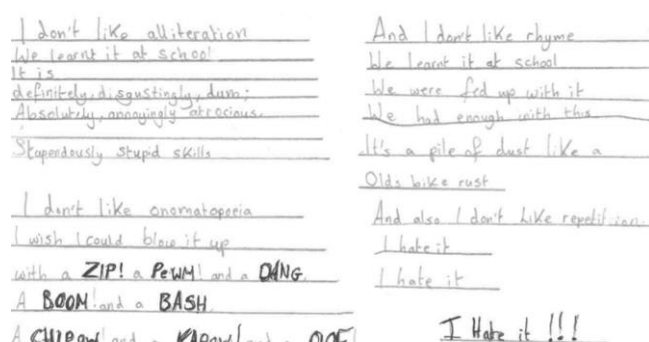 I don't like alliteration
We learnt it at school
It is
definitely, disgustingly, dum;
Absolutely, annoyingly atrocious.
Stupendously stupid skills
I don't like onomatopoeia
I wish I could blow it up
with a ZIP! a PeWM! and a DANG.
A BOOM! and a BASH.
A CHIPOW! and a KAPOW! and a OOF!
And I don't like rhyme
We learnt it at school
We were fed up with it
We had enough with this
It's a pile of dust like a
Olds bike rust
And also I don't Like repetition.
I hate it
I hate it
I Hate it !!!